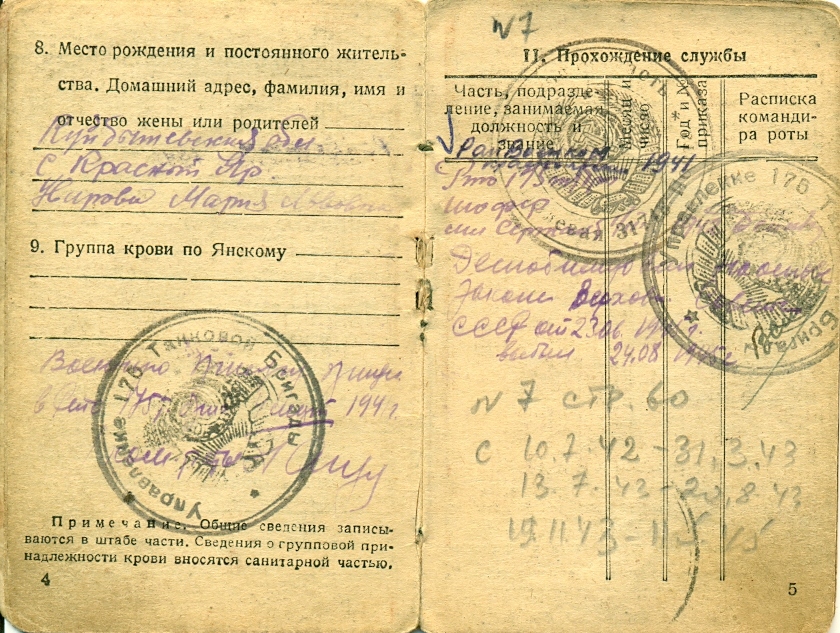 8. Место рождения и постоянного житель-
ства. Домашний адрес, фамилия, имя и
отчество жены или родителей
Куйбышевская обл
с. Красный Яр
Мария Львовна
9. Группа крови по Янскому
Управление 175 Танковой Бригады
Военную принял
1941 г.
Примечание. Общие сведения записы-
ваются в штабе части. Сведения о групповой при-
надлежности крови вносятся санитарной частью.
4
№7
II. Прохождение службы
Часть, подразде-
ление, занимаемая
должность и
звание
Месяц и
число
Год и №
приказа
Расписка
команди-
ра роты
1941
шофер
Управление 175
Бригады
31715
Демобилизован на основе
Закона Верхов. Совета
СССР от 23.06 1945 г.
выбыл 24.08 1945 г
№ 7 стр. 60
с 10.7.42 - 31.3.43
13.7.43 - 20.8.43
19.11.43 -
5